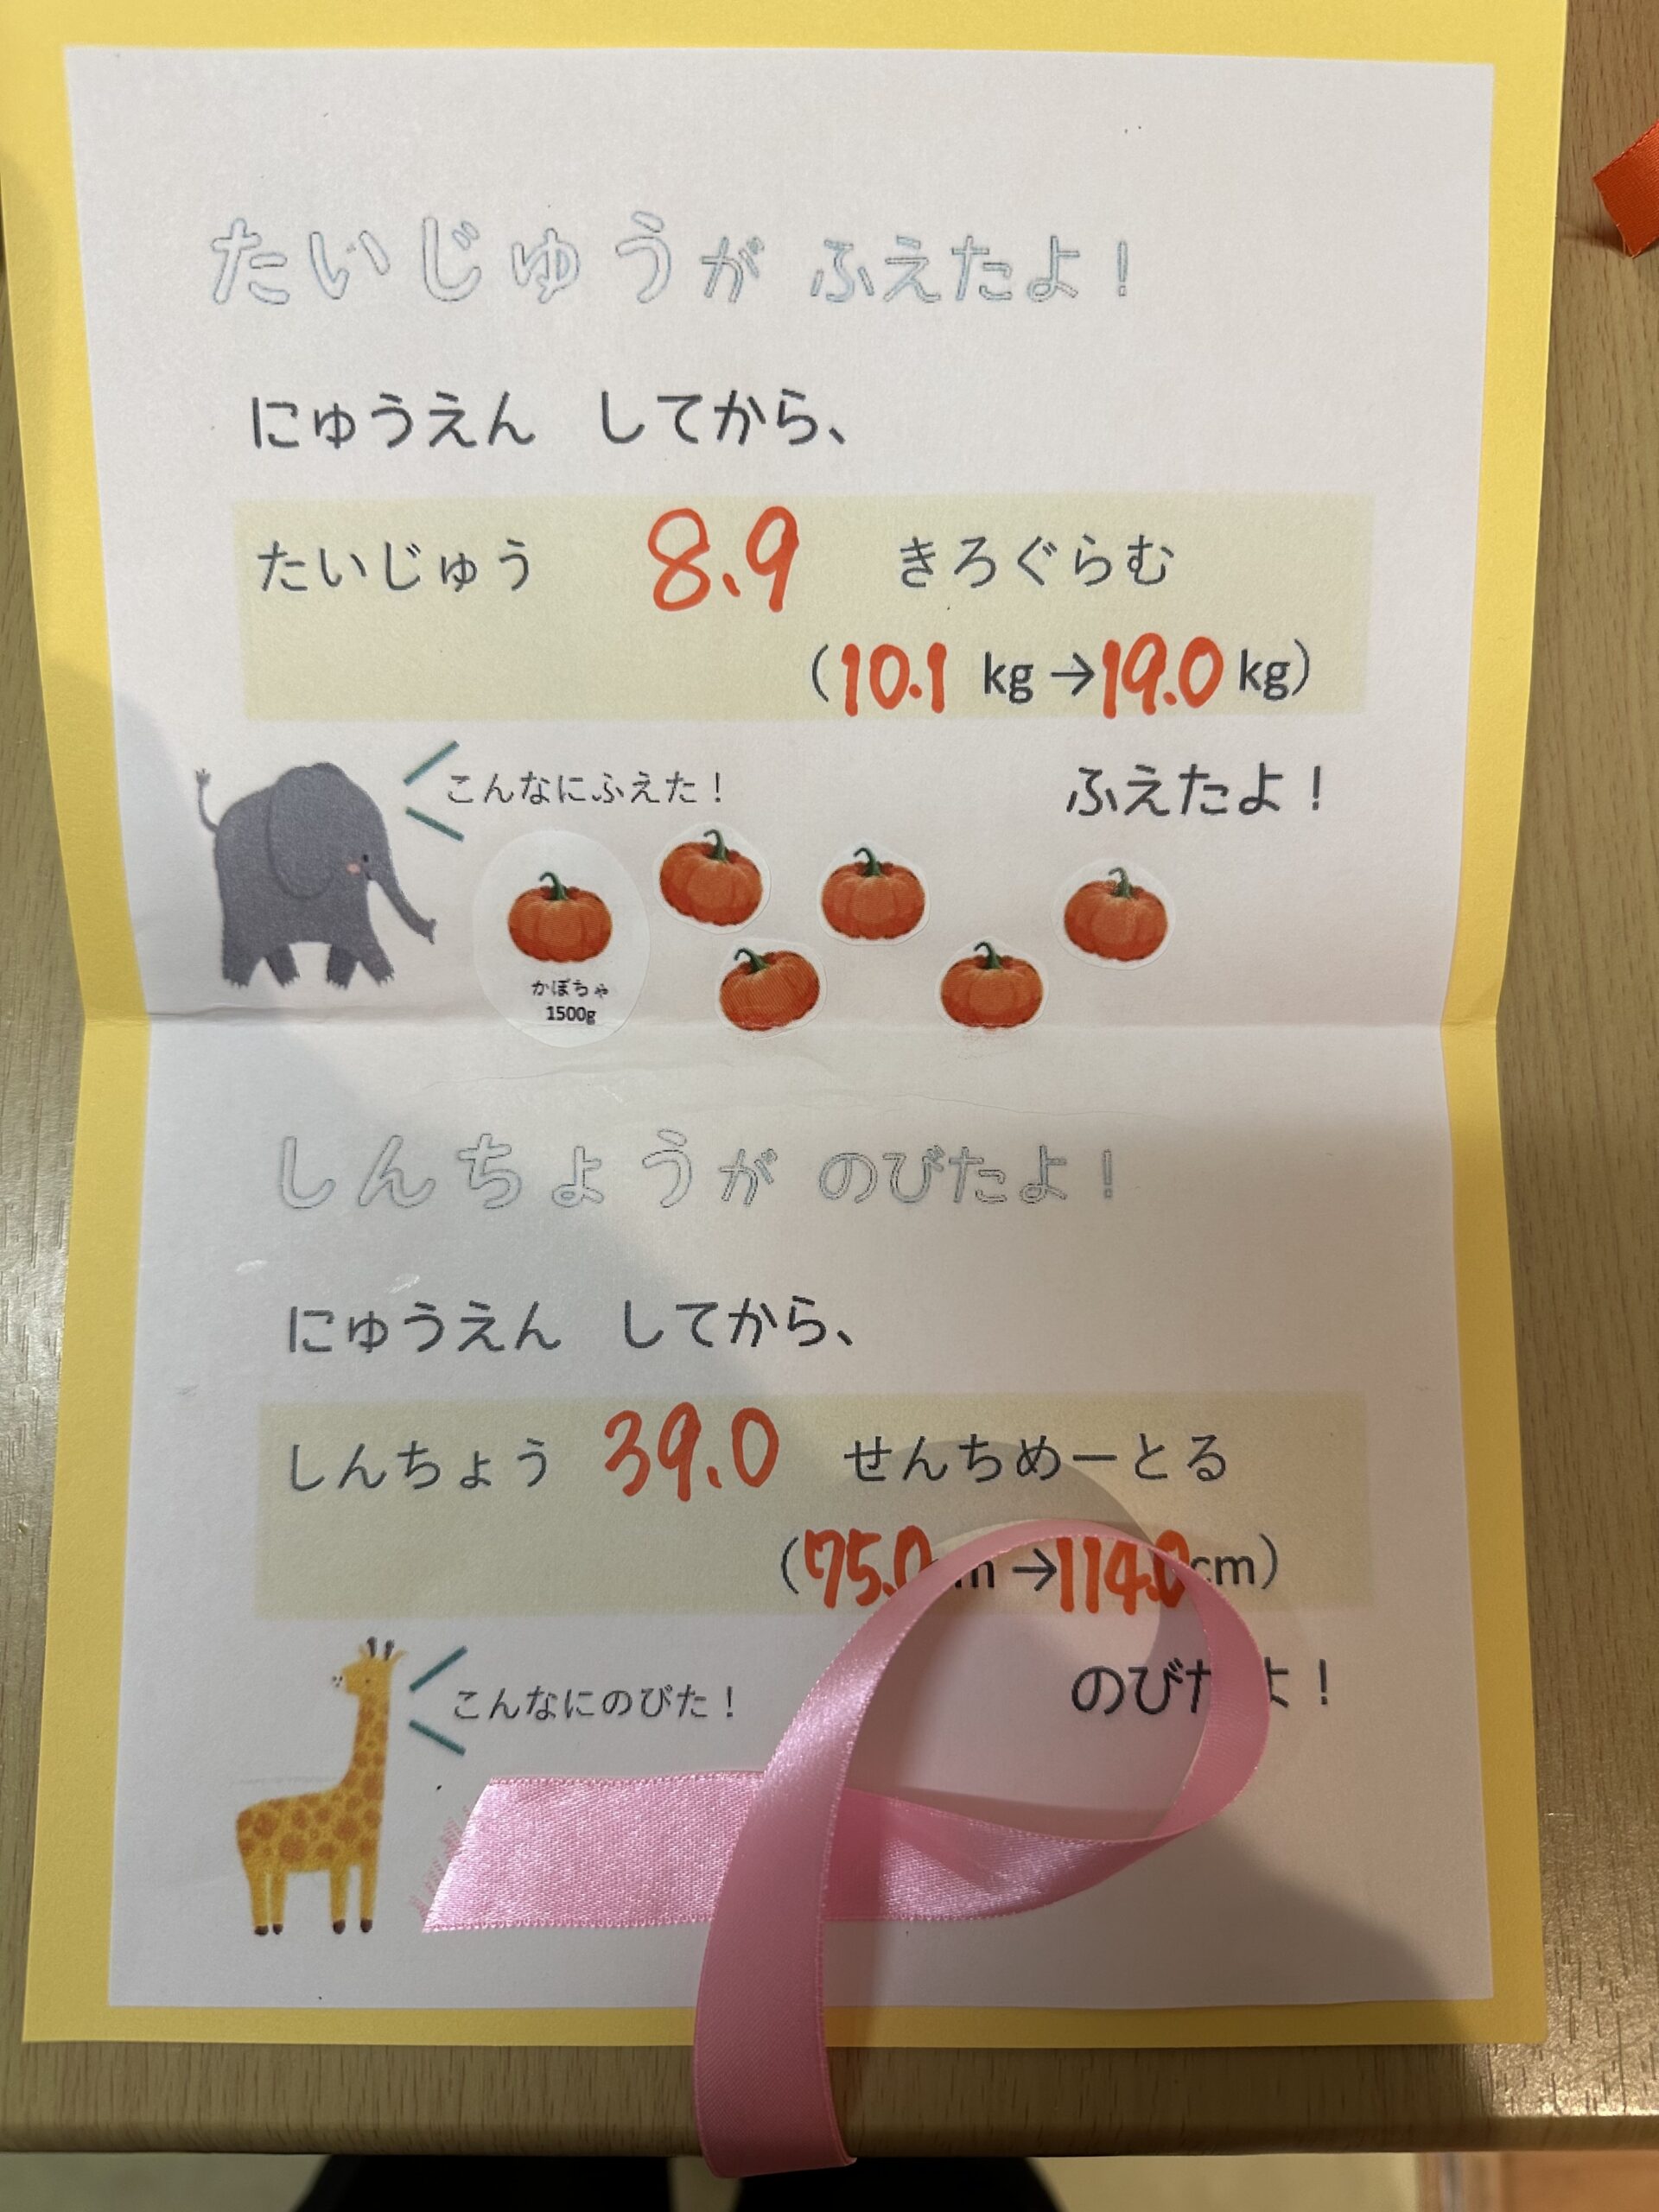 たいじゅうが ふえたよ！
にゅうえん してから、
たいじゅう 8.9 きろぐらむ
（10.1 kg→19.0 kg）
こんなにふえた！
ふえたよ！
かぼちゃ
1500g
しんちょうが のびたよ！
にゅうえん してから、
しんちょう 39.0 せんちめーとる
（75.0cm→114.0cm）
こんなにのびた！
のびたよ！